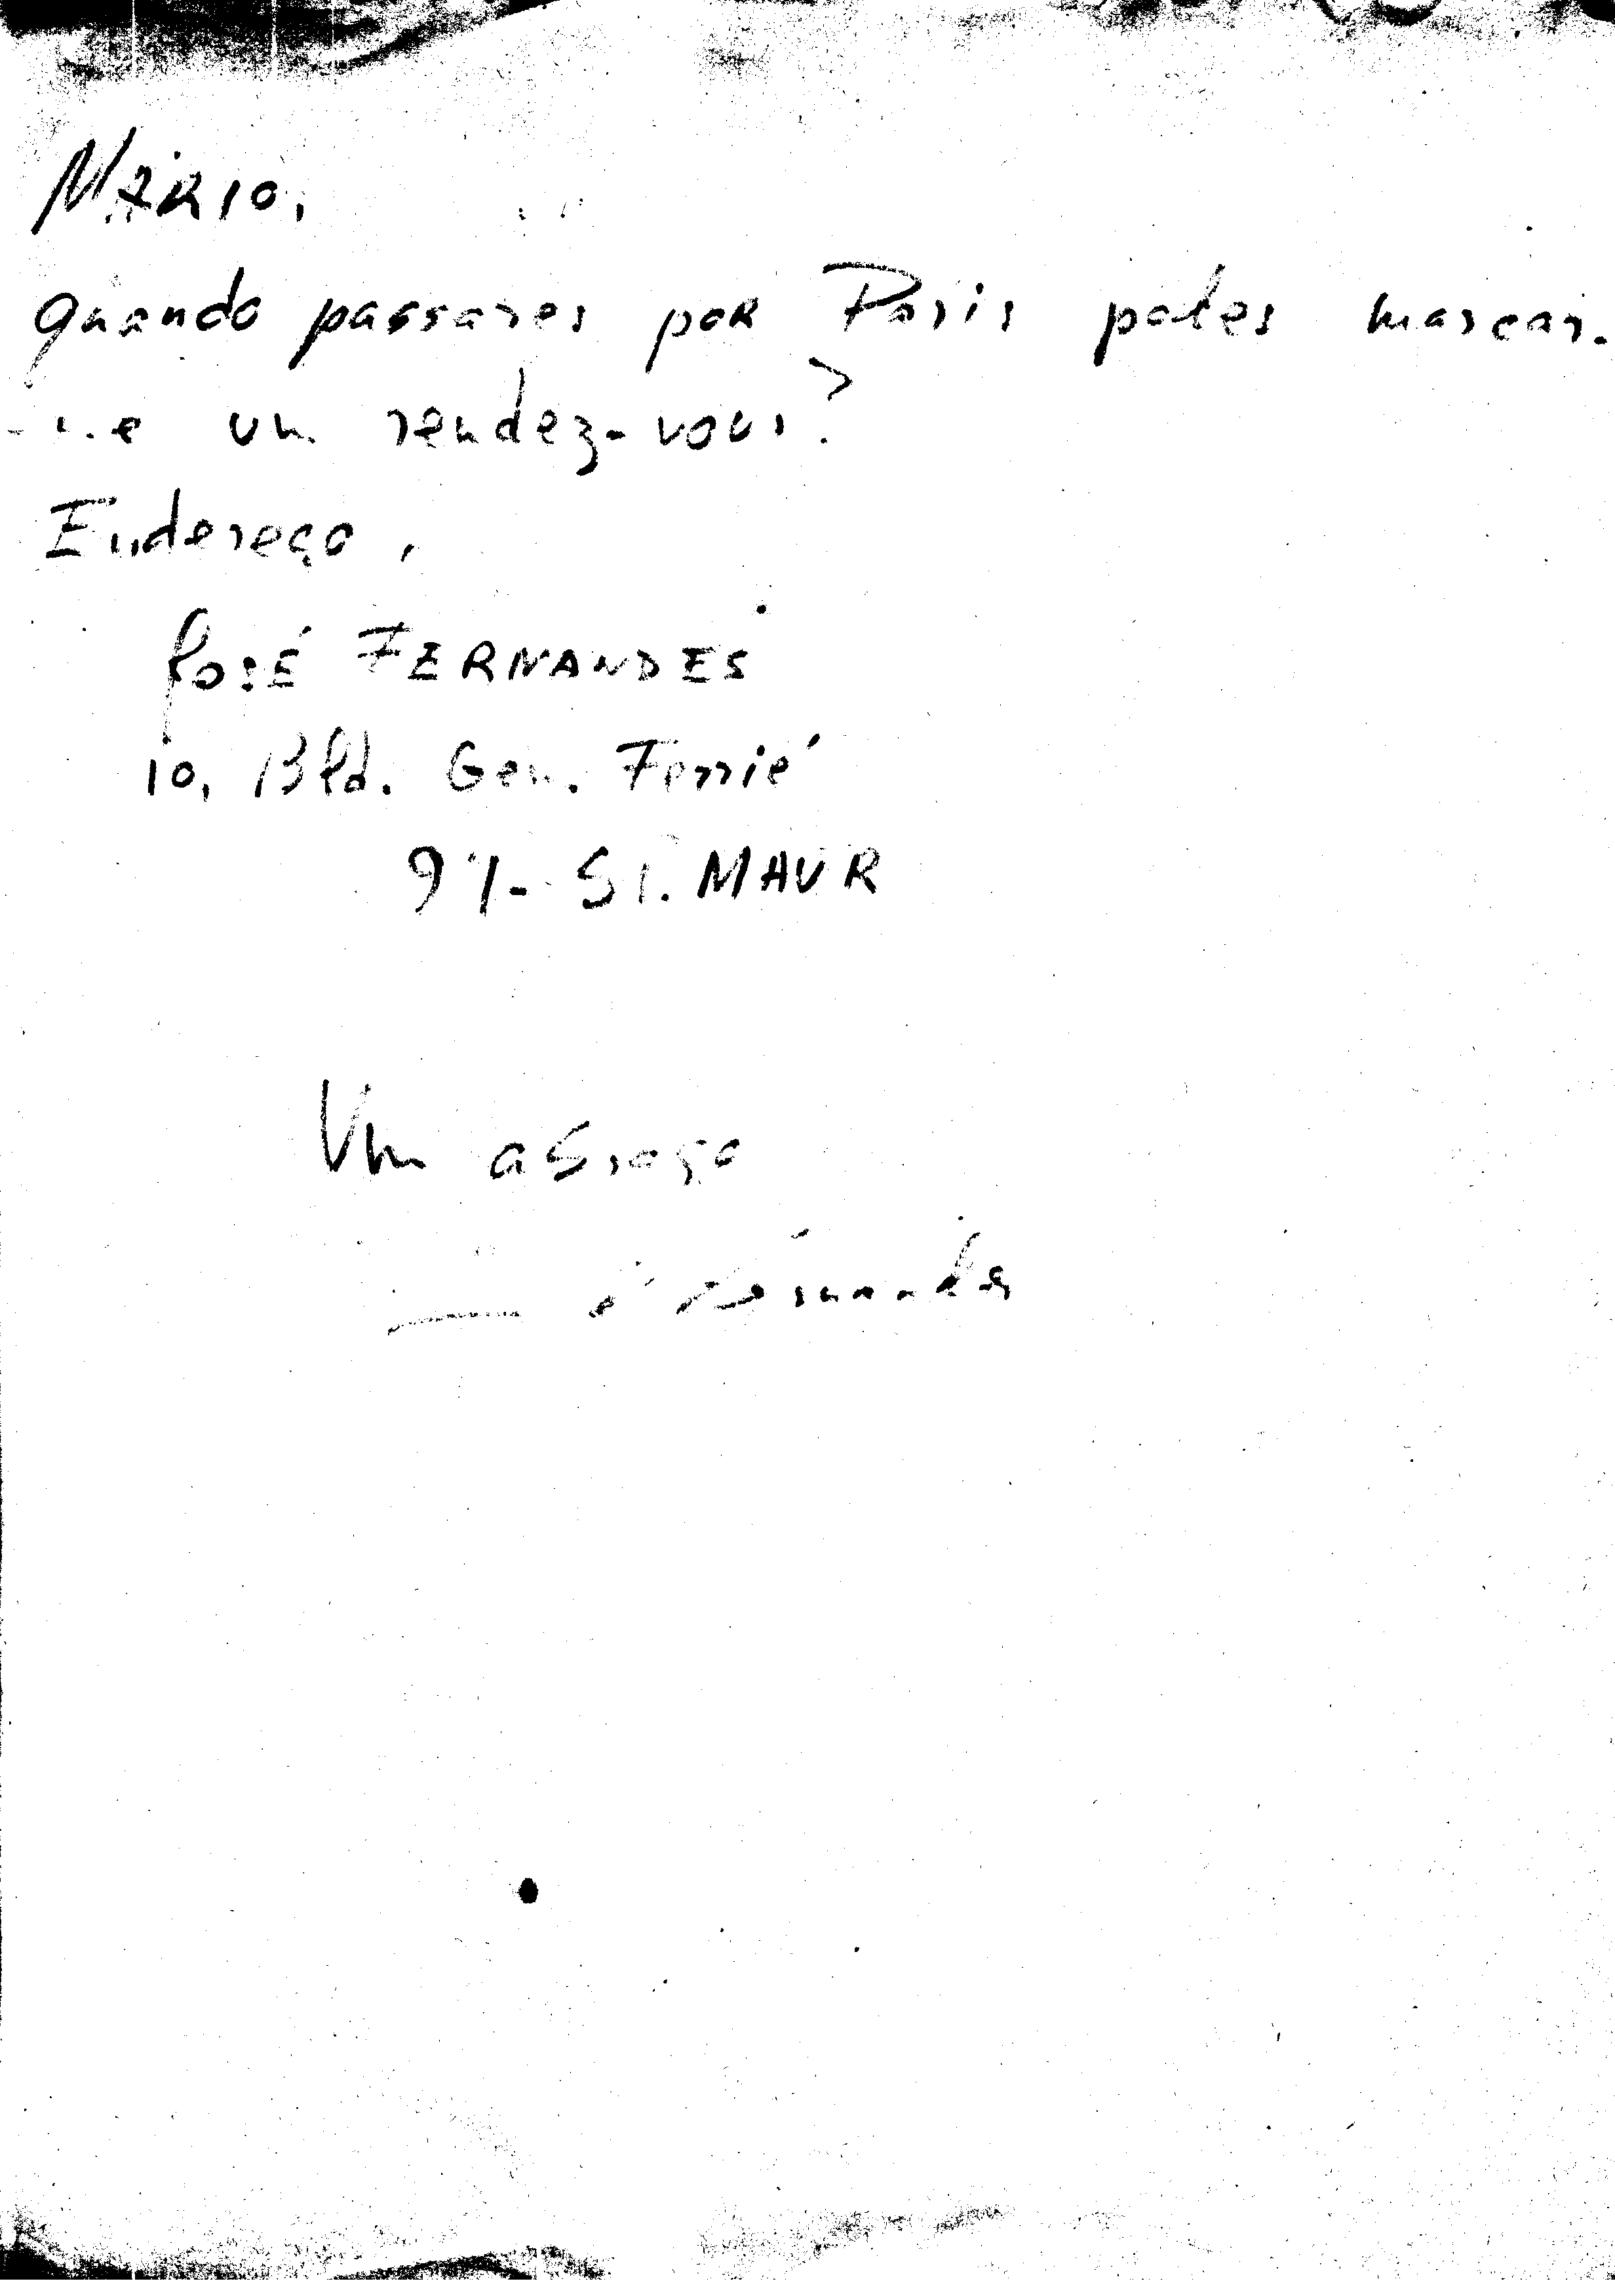 MÁRIO,
quando passares por Paris podes marcar-
-me um rendez-vous?
Endereço,
JOSÉ FERNANDES
10, Bld. Gen. Ferrié
94- St. MAUR
Um abraço
Fernandes